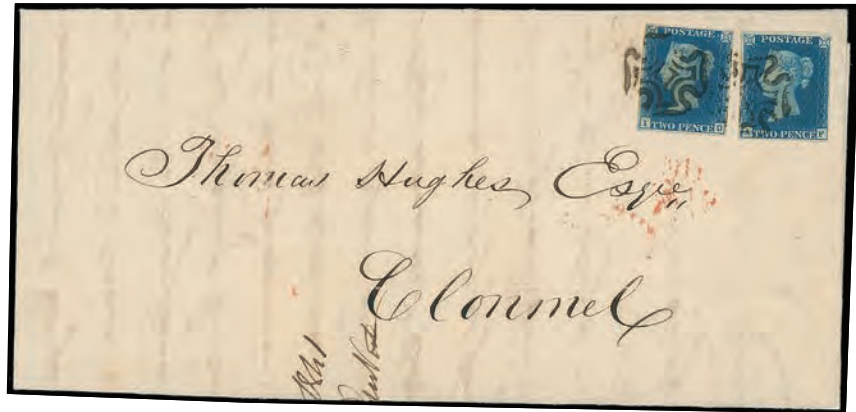 POSTAGE
I TWO PENCE D
POSTAGE
TWO PENCE F
Thomas Hughes Esqre
Clonmel
1841